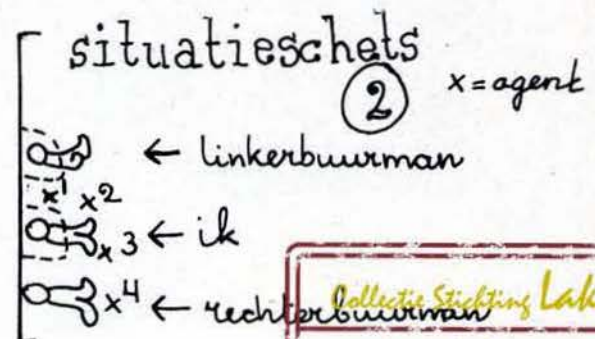 situatieschets
2
x = agent
← linkerbuurman
x1 x2
x3 ← ik
x4 ← rechterbuurman
Collectie Stichting Lak